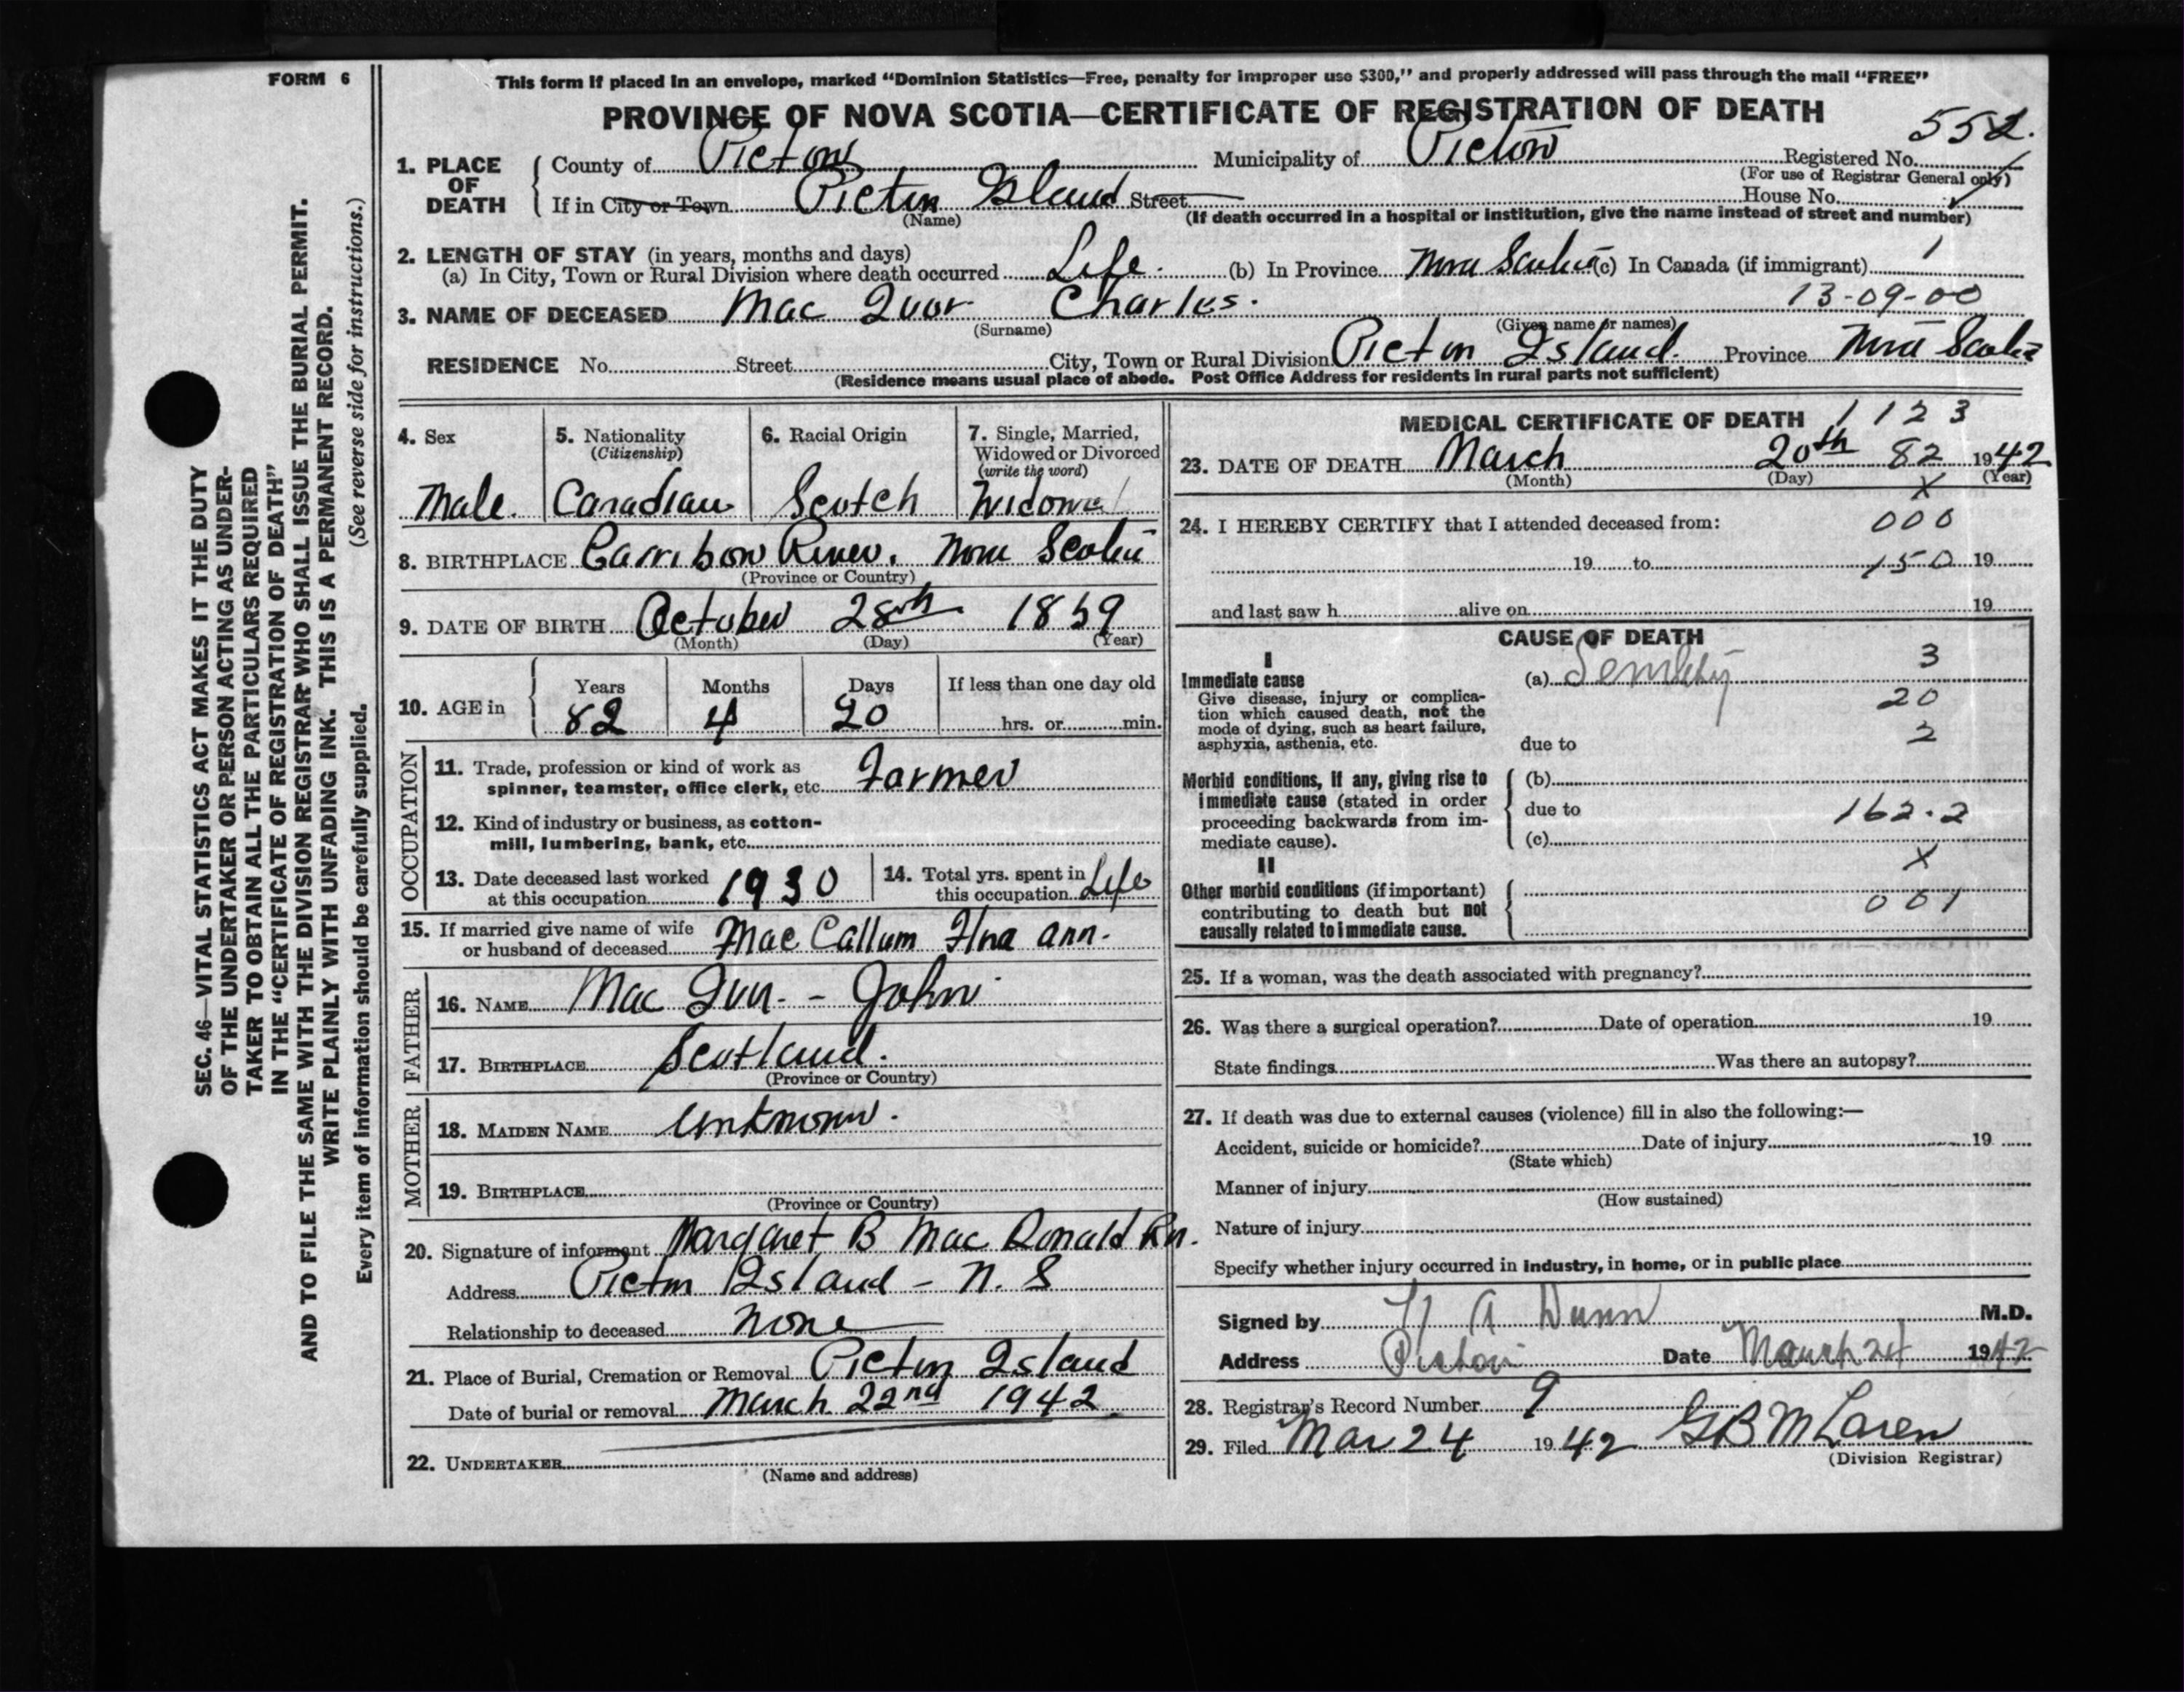 FORM 6
This form if placed in an envelope, marked “Dominion Statistics—Free, penalty for improper use $300,” and properly addressed will pass through the mail “FREE”
PROVINCE OF NOVA SCOTIA—CERTIFICATE OF REGISTRATION OF DEATH
552.
1. PLACE OF DEATH County of Pictou Municipality of Pictou Registered No.
(For use of Registrar General only)
If in City or Town Pictou Island Street House No.
(Name) (If death occurred in a hospital or institution, give the name instead of street and number)
2. LENGTH OF STAY (in years, months and days)
(a) In City, Town or Rural Division where death occurred Life. (b) In Province Nova Scotia (c) In Canada (if immigrant) 1
13-09-00
3. NAME OF DECEASED Mac Quor Charles.
(Surname) (Given name or names)
RESIDENCE No. Street City, Town or Rural Division Pictou Island. Province Nova Scotia
(Residence means usual place of abode. Post Office Address for residents in rural parts not sufficient)
4. Sex 5. Nationality (Citizenship) 6. Racial Origin 7. Single, Married, Widowed or Divorced (write the word)
Male. Canadian Scotch Widowed
8. BIRTHPLACE Carribow River. Nova Scotia
(Province or Country)
9. DATE OF BIRTH October 28th 1859
(Month) (Day) (Year)
10. AGE in Years Months Days If less than one day old
82 4 20 hrs. or min.
OCCUPATION
11. Trade, profession or kind of work as
spinner, teamster, office clerk, etc. Farmer
12. Kind of industry or business, as cotton-
mill, lumbering, bank, etc.
13. Date deceased last worked
at this occupation 1930
14. Total yrs. spent in
this occupation Life
15. If married give name of wife
or husband of deceased Mac Callum Ann.
FATHER
16. NAME Mac - John
17. BIRTHPLACE Scotland.
(Province or Country)
MOTHER
18. MAIDEN NAME Unknown.
19. BIRTHPLACE
(Province or Country)
20. Signature of informant Margaret B Mac Donald Rn.
Address Pictou Island - N. S
Relationship to deceased None
21. Place of Burial, Cremation or Removal Pictou Island
Date of burial or removal March 22nd 1942.
22. UNDERTAKER
(Name and address)
MEDICAL CERTIFICATE OF DEATH 1 1 2 3
23. DATE OF DEATH March 20th 82 1942
(Month) (Day) (Year)
X
24. I HEREBY CERTIFY that I attended deceased from: 000
19 to 150 19
and last saw h alive on 19
CAUSE OF DEATH
I
Immediate cause (a) Senility 3
Give disease, injury or complica-
tion which caused death, not the 20
mode of dying, such as heart failure,
asphyxia, asthenia, etc. due to 2
Morbid conditions, if any, giving rise to (b)
immediate cause (stated in order due to 162.2
proceeding backwards from im-
mediate cause). (c)
X
II
Other morbid conditions (if important) 001
contributing to death but not
causally related to immediate cause.
25. If a woman, was the death associated with pregnancy?
26. Was there a surgical operation? Date of operation 19
State findings Was there an autopsy?
27. If death was due to external causes (violence) fill in also the following:—
Accident, suicide or homicide? Date of injury 19
(State which)
Manner of injury
(How sustained)
Nature of injury
Specify whether injury occurred in industry, in home, or in public place
Signed by A Dunn M.D.
Address Pictou Date March 24 1942
28. Registrar's Record Number 9
29. Filed Mar 24 1942 G B McLaren
(Division Registrar)
SEC. 46—VITAL STATISTICS ACT MAKES IT THE DUTY
OF THE UNDERTAKER OR PERSON ACTING AS UNDER-
TAKER TO OBTAIN ALL THE PARTICULARS REQUIRED
IN THE “CERTIFICATE OF REGISTRATION OF DEATH”
AND TO FILE THE SAME WITH THE DIVISION REGISTRAR WHO SHALL ISSUE THE BURIAL PERMIT.
WRITE PLAINLY WITH UNFADING INK. THIS IS A PERMANENT RECORD.
Every item of information should be carefully supplied. (See reverse side for instructions.)